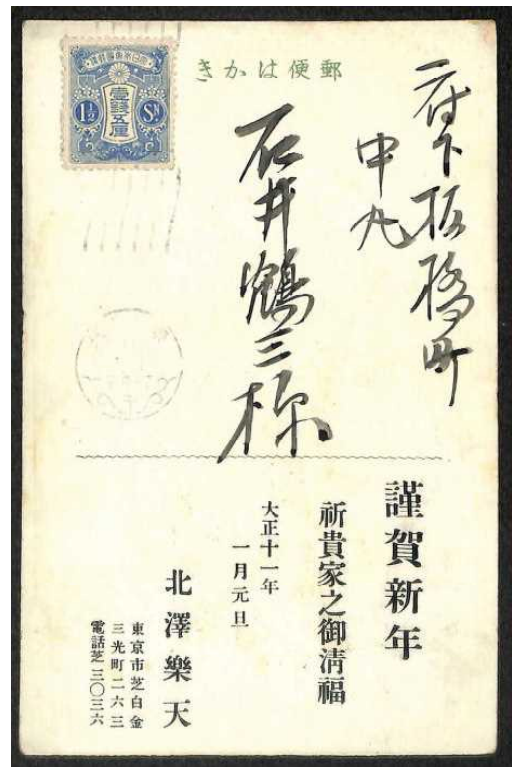 きかは便郵
大日本帝國郵便
壹錢五厘
1½
Sn
府下板橋町
中丸
石井鶴三様
謹賀新年
祈貴家之御清福
大正十一年
一月元旦
北澤樂天
東京市芝白金
三光町二六三
電話芝三〇三六